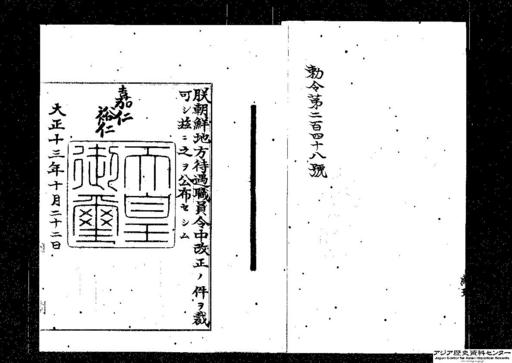 勅令第二百四十八號
朕朝鮮地方待遇職員令中改正ノ件ヲ裁
可シ玆ニ之ヲ公布セシム
嘉仁
裕仁
天皇
御璽
大正十三年十月二十二日
アジア歴史資料センター
Japan Center for Asian Historical Records